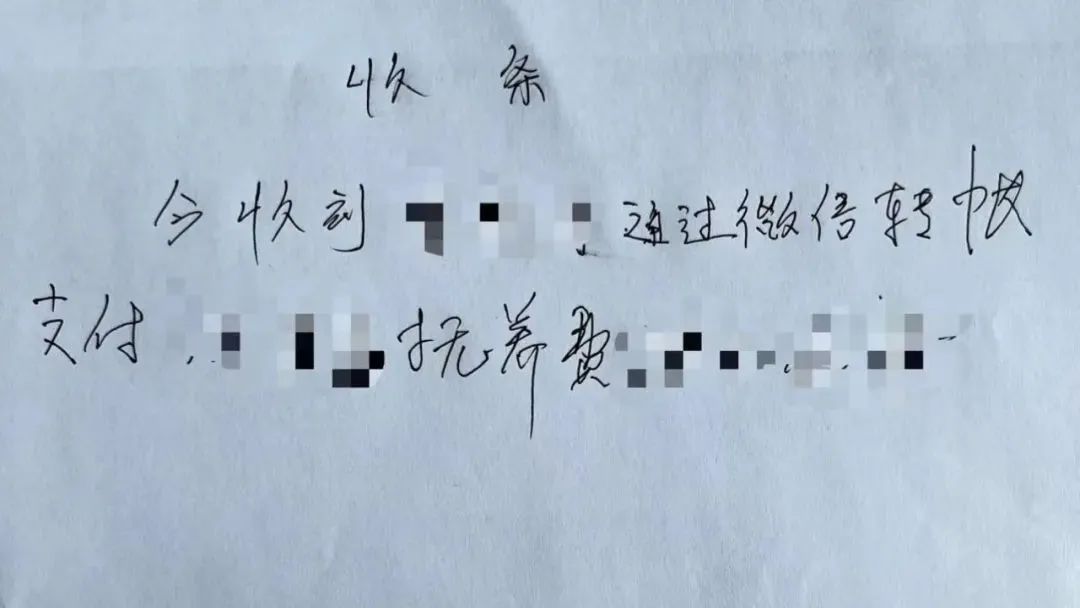 收条
今收到通过微信转帐
支付抚养费